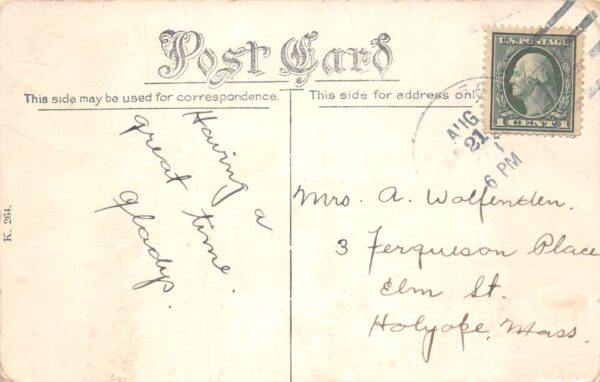 Post Card
This side may be used for correspondence.
This side for address only
U.S. POSTAGE
1 CENT 1
AUG
21
6 PM
Having a
great time.
Gladys.
Mrs. A. Wolfenden.
3 Fergueson Place
Elm St.
Holyoke, Mass.
K. 264.